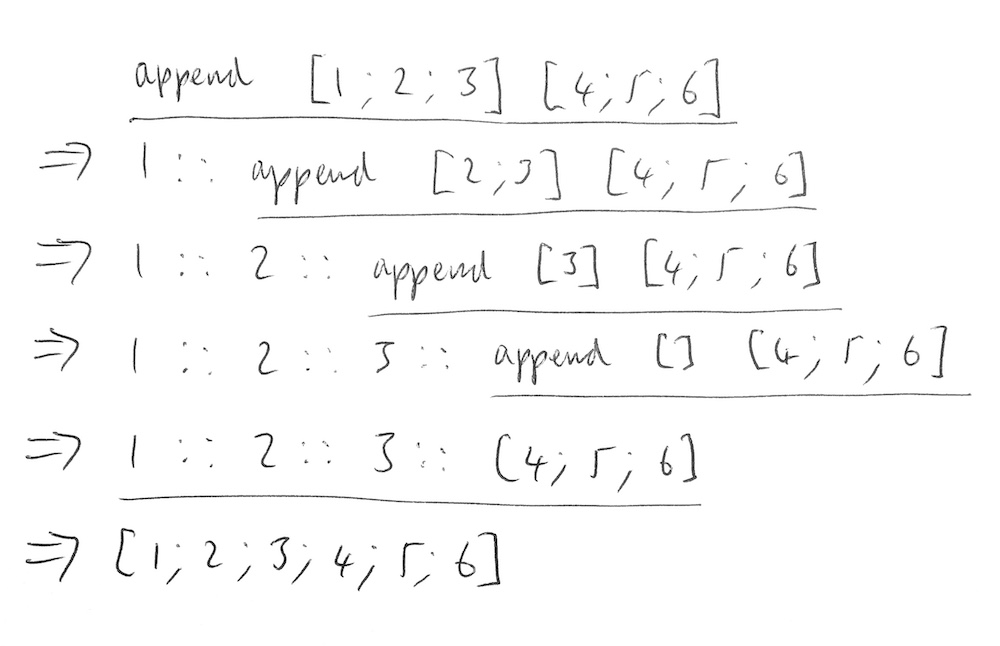 append [1; 2; 3] [4; 5; 6]
⇒ 1 :: append [2; 3] [4; 5; 6]
⇒ 1 :: 2 :: append [3] [4; 5; 6]
⇒ 1 :: 2 :: 3 :: append [] [4; 5; 6]
⇒ 1 :: 2 :: 3 :: [4; 5; 6]
⇒ [1; 2; 3; 4; 5; 6]